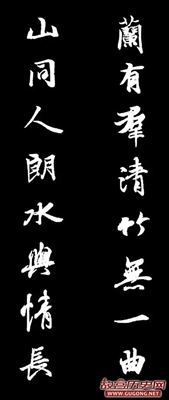 蘭有羣清竹無一曲
山同人朗水與情長
故宫历史网
www.GUGONG.NET